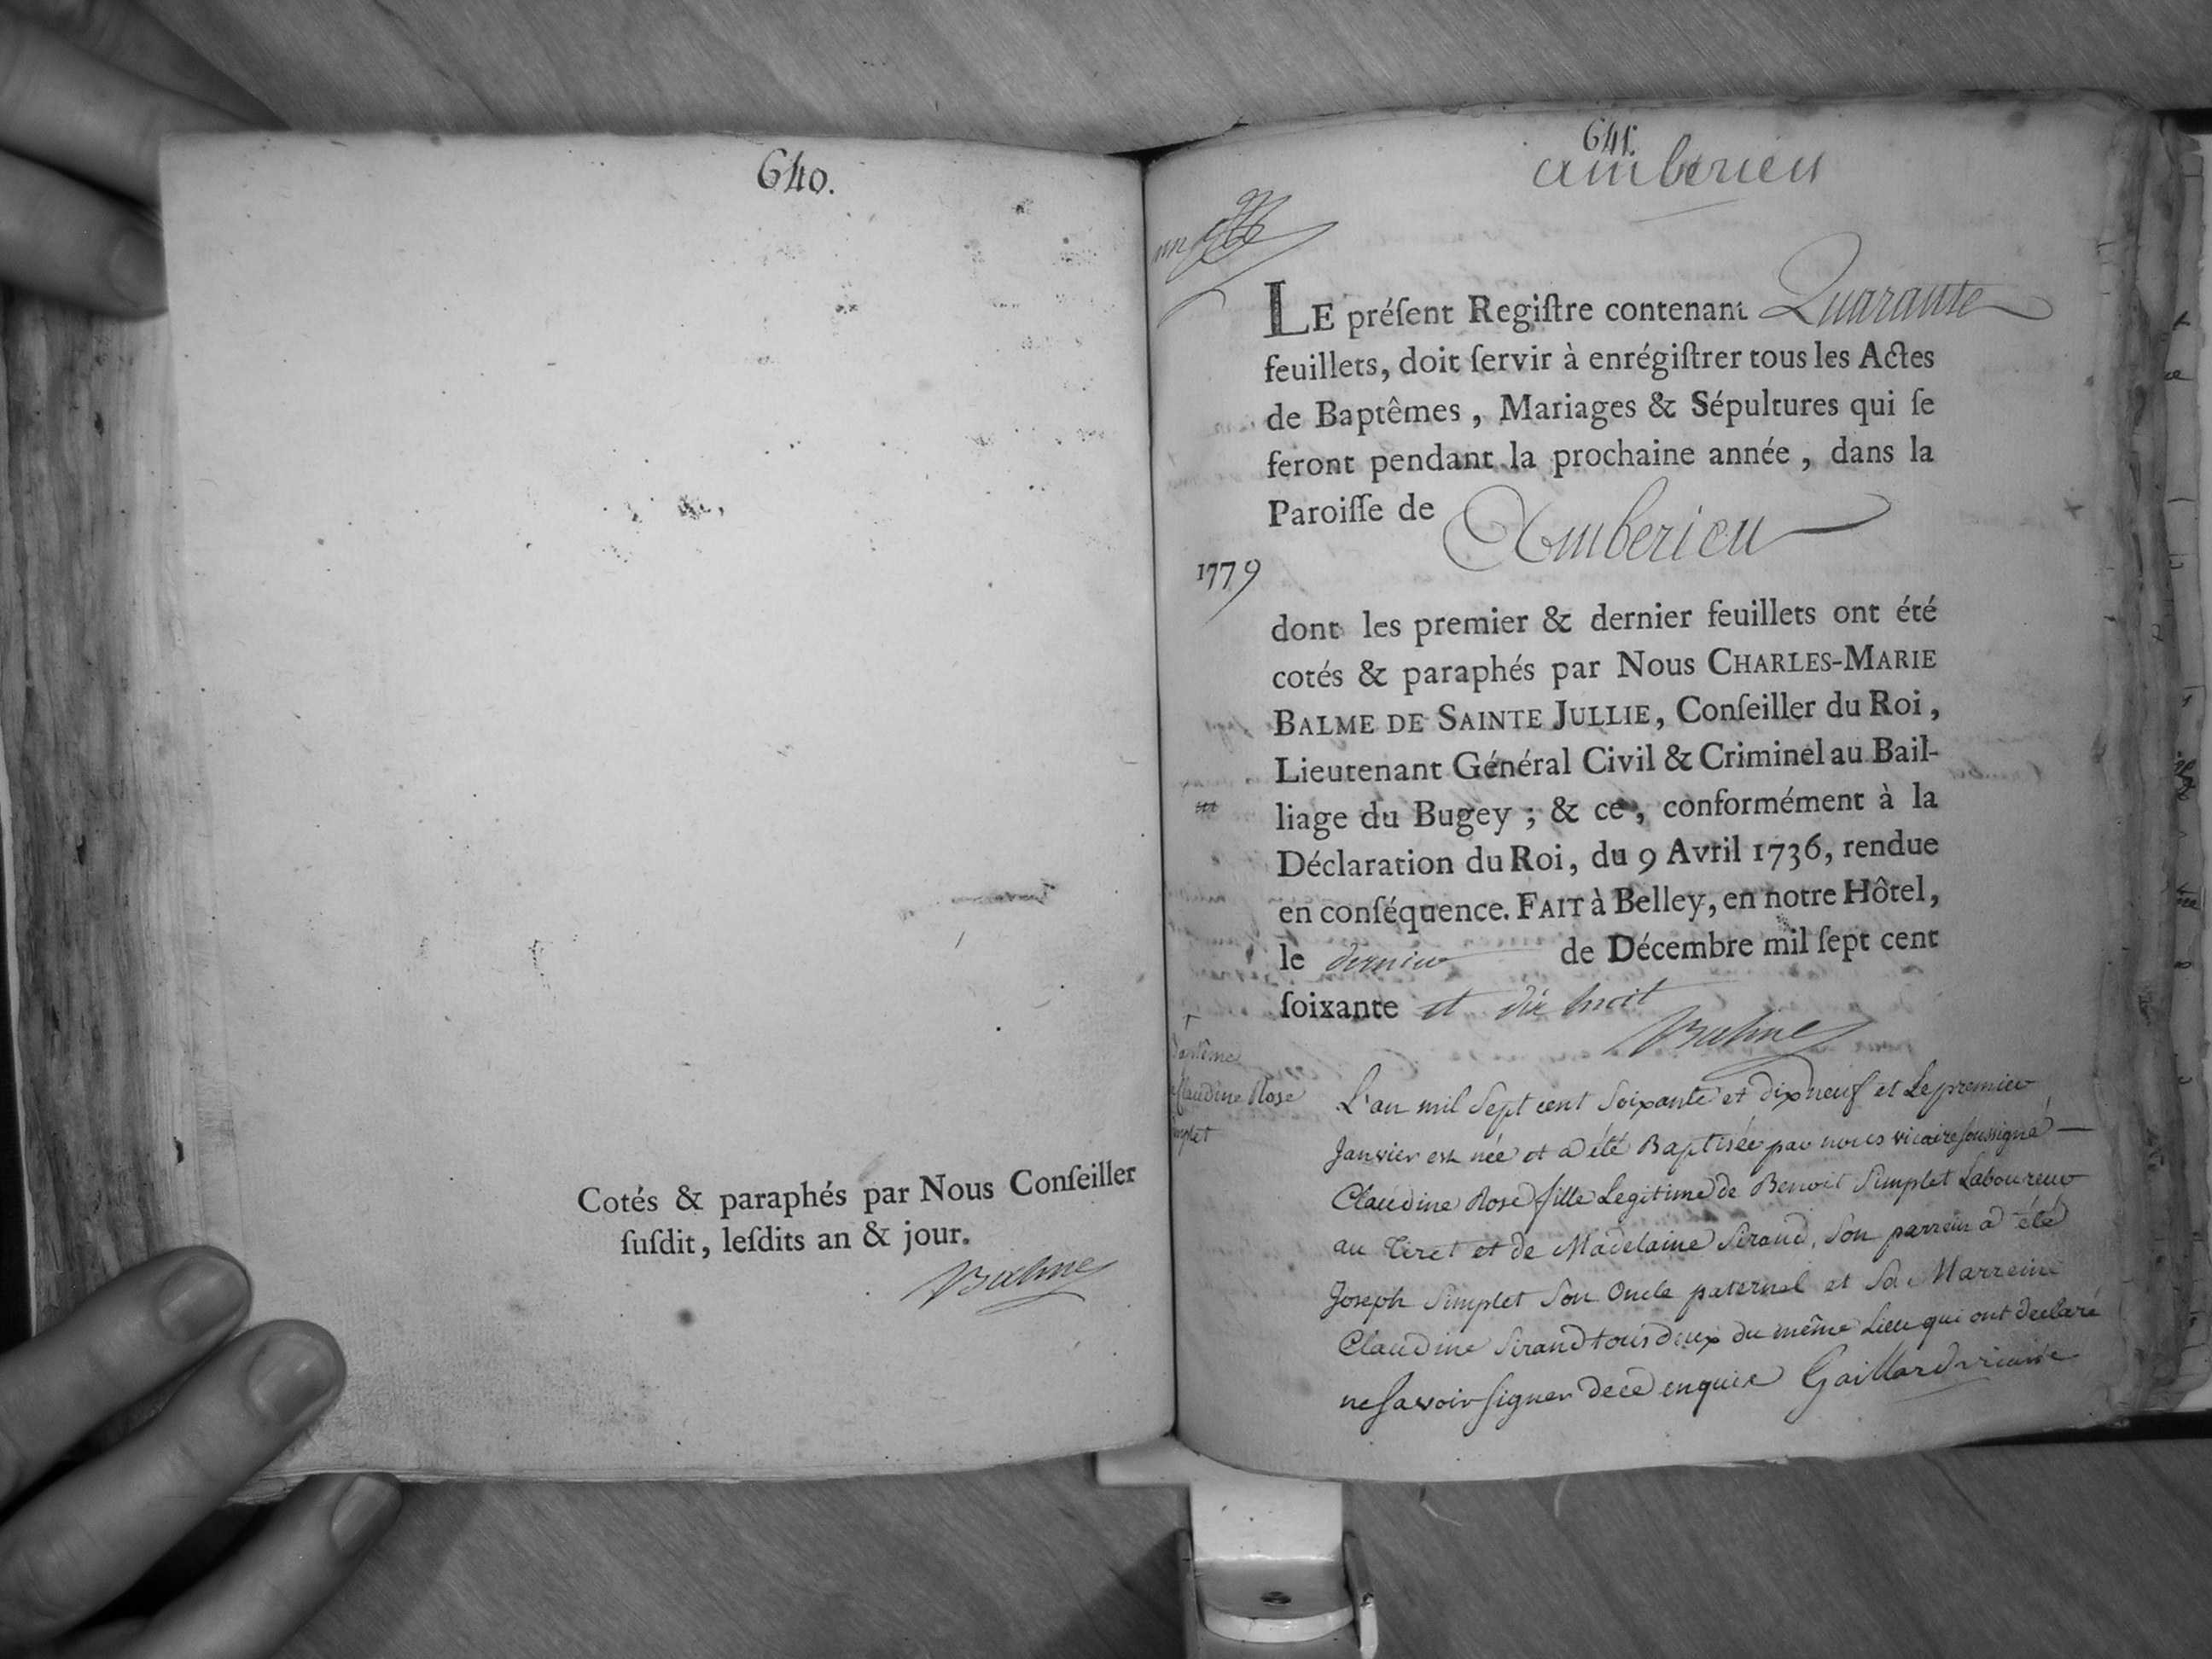 640.
Cotés & paraphés par Nous Conſeiller
ſuſdit, leſdits an & jour.
Balme
641.
amberieu
LE préſent Regiſtre contenant Quarante
feuillets, doit ſervir à enrégiſtrer tous les Actes
de Baptêmes, Mariages & Sépultures qui ſe
feront pendant la prochaine année, dans la
Paroiſſe de Amberieu
1779
dont les premier & dernier feuillets ont été
cotés & paraphés par Nous CHARLES-MARIE
BALME DE SAINTE JULLIE, Conſeiller du Roi,
Lieutenant Général Civil & Criminel au Bail-
liage du Bugey; & ce, conformément à la
Déclaration du Roi, du 9 Avril 1736, rendue
en conſéquence. FAIT à Belley, en notre Hôtel,
le dernier de Décembre mil ſept cent
ſoixante et dix huit
Balme
Baptême
Claudine Rose
L'an mil Sept cent Soixante et dixneuf et Le premier
Janvier est née et a été Baptisée par nous vicaire soussigné
Claudine Rose fille Legitime de Benoit Simplet Laboureur
au Tiret et de Madelaine Sirand, Son parrein a été
Joseph Simplet Son Oncle paternel et Sa Marreine
Claudine Sirand tous deux du même Lieu qui ont declaré
ne Savoir signer de ce enquis Gaillard vicaire